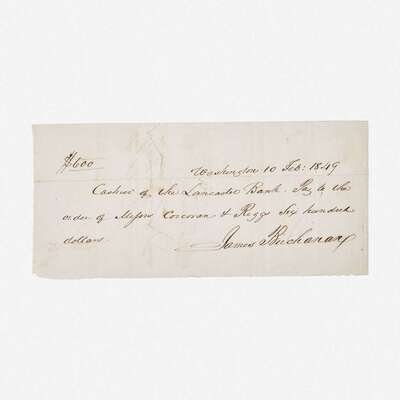 $600
Washington 10 Feb: 1849
Cashier of the Lancaster Bank. Pay to the
order of Messrs Corcoran & Riggs Six hundred
dollars.
James Buchanan